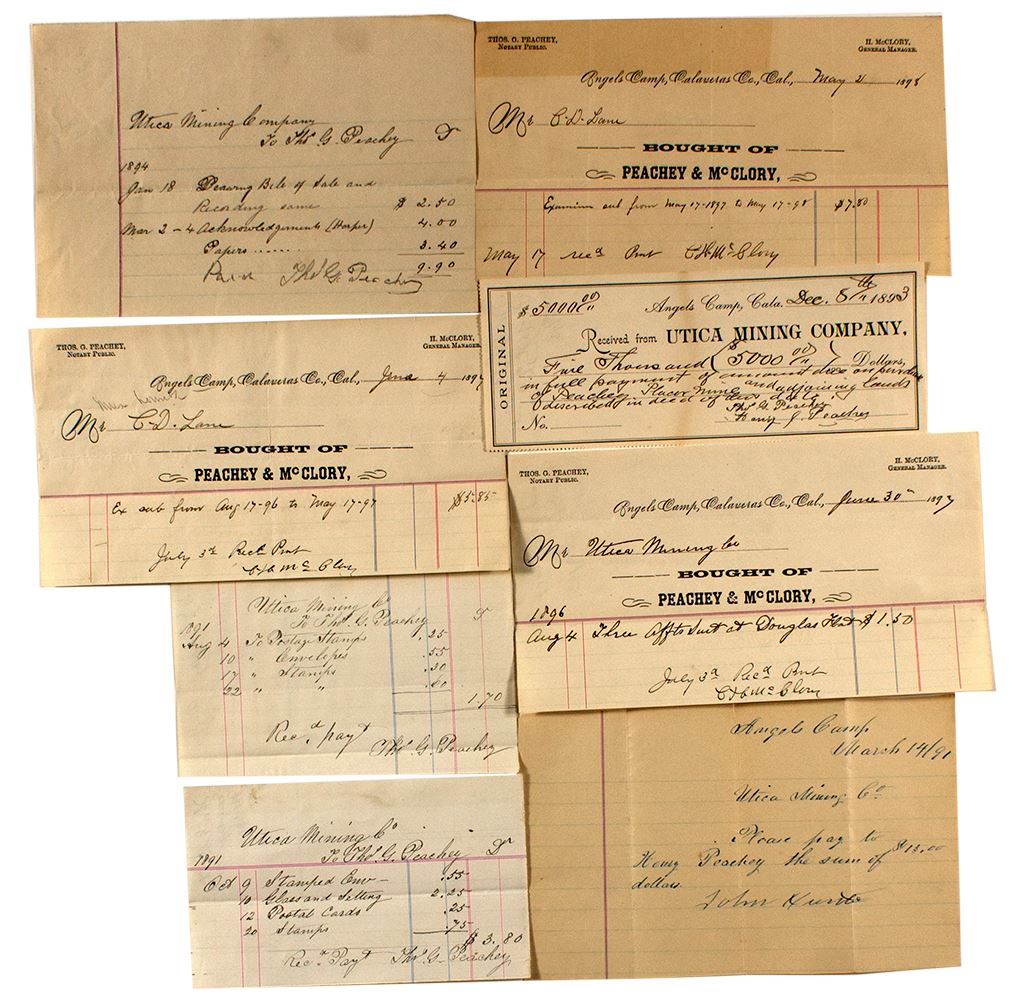 Utica Mining Company
To Thos G. Peachey Dr
1894
Jan 18 Drawing Bill of Sale and
Recording same $ 2.50
Mar 2-4 Acknowledgements (Harper) 4.00
Papers ...... 3.40
9.90
Paid Thos G. Peachey
THOS. G. PEACHEY,
NOTARY PUBLIC.
H. McCLORY,
GENERAL MANAGER.
Angels Camp, Calaveras Co., Cal., May 21 1898
Mr C. D. Lane
BOUGHT OF
PEACHEY & McCLORY,
Examiner sub from May 17-1897 to May 17-98 $7.80
May 17 recd Pmt C H McClory
ORIGINAL
$5000.00 Angels Camp, Cala. Dec. 8th 1893
Received from UTICA MINING COMPANY,
Five Thousand ($5000.00) Dollars,
in full payment of amount due on purchase
of Peachey Placer Mine and adjoining lands
described in deed of this date.
Thos G. Peachey
No. Henry J. Peachey
THOS. G. PEACHEY,
NOTARY PUBLIC.
H. McCLORY,
GENERAL MANAGER.
Angels Camp, Calaveras Co., Cal., June 4 1897
Mr C. D. Lane
BOUGHT OF
PEACHEY & McCLORY,
Ex sub from Aug 17-96 to May 17-97 $5.85
July 3d Recd Pmt
McClory
THOS. G. PEACHEY,
NOTARY PUBLIC.
H. McCLORY,
GENERAL MANAGER.
Angels Camp, Calaveras Co., Cal., June 30 1897
Mr Utica Mining Co
BOUGHT OF
PEACHEY & McCLORY,
1896
Aug 4 Three Affts Suit at Douglas Flat $1.50
July 3d Recd Pmt
McClory
Utica Mining Co
To Thos G. Peachey Dr
1891
Aug 4 To Postage Stamps .25
10 " Envelopes .55
17 " Stamps .30
22 " " .60
1.70
Recd payt
Thos G Peachey
Angels Camp
March 14/91
Utica Mining Co
Please pay to
Henry Peachey the sum of $12.00
dollars.
John
Utica Mining Co
1891 To Thos G. Peachey Dr
Oct 9 Stamped Env- .55
10 Glass and Setting 2.25
12 Postal Cards .25
20 Stamps .75
$ 3.80
Recd Payt Thos G. Peachey